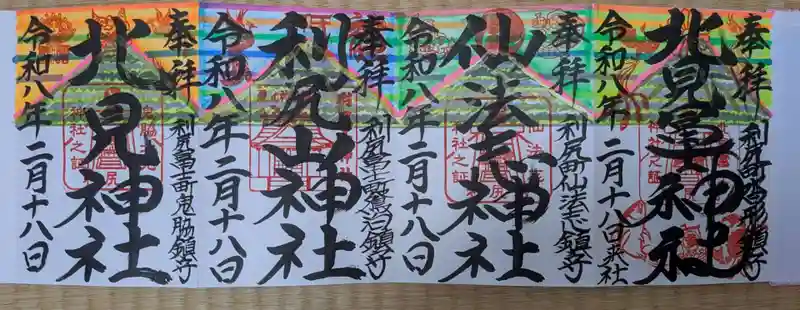 奉拝
利尻町沓形鎮守
北見冨士神社
令和八年二月十八日来社
奉拝
利尻町仙法志鎮守
仙法志神社
令和八年二月十八日
奉拝
利尻冨士町鴛泊鎮守
利尻山神社
令和八年二月十八日
奉拝
利尻冨士町鬼脇鎮守
北見神社
令和八年二月十八日